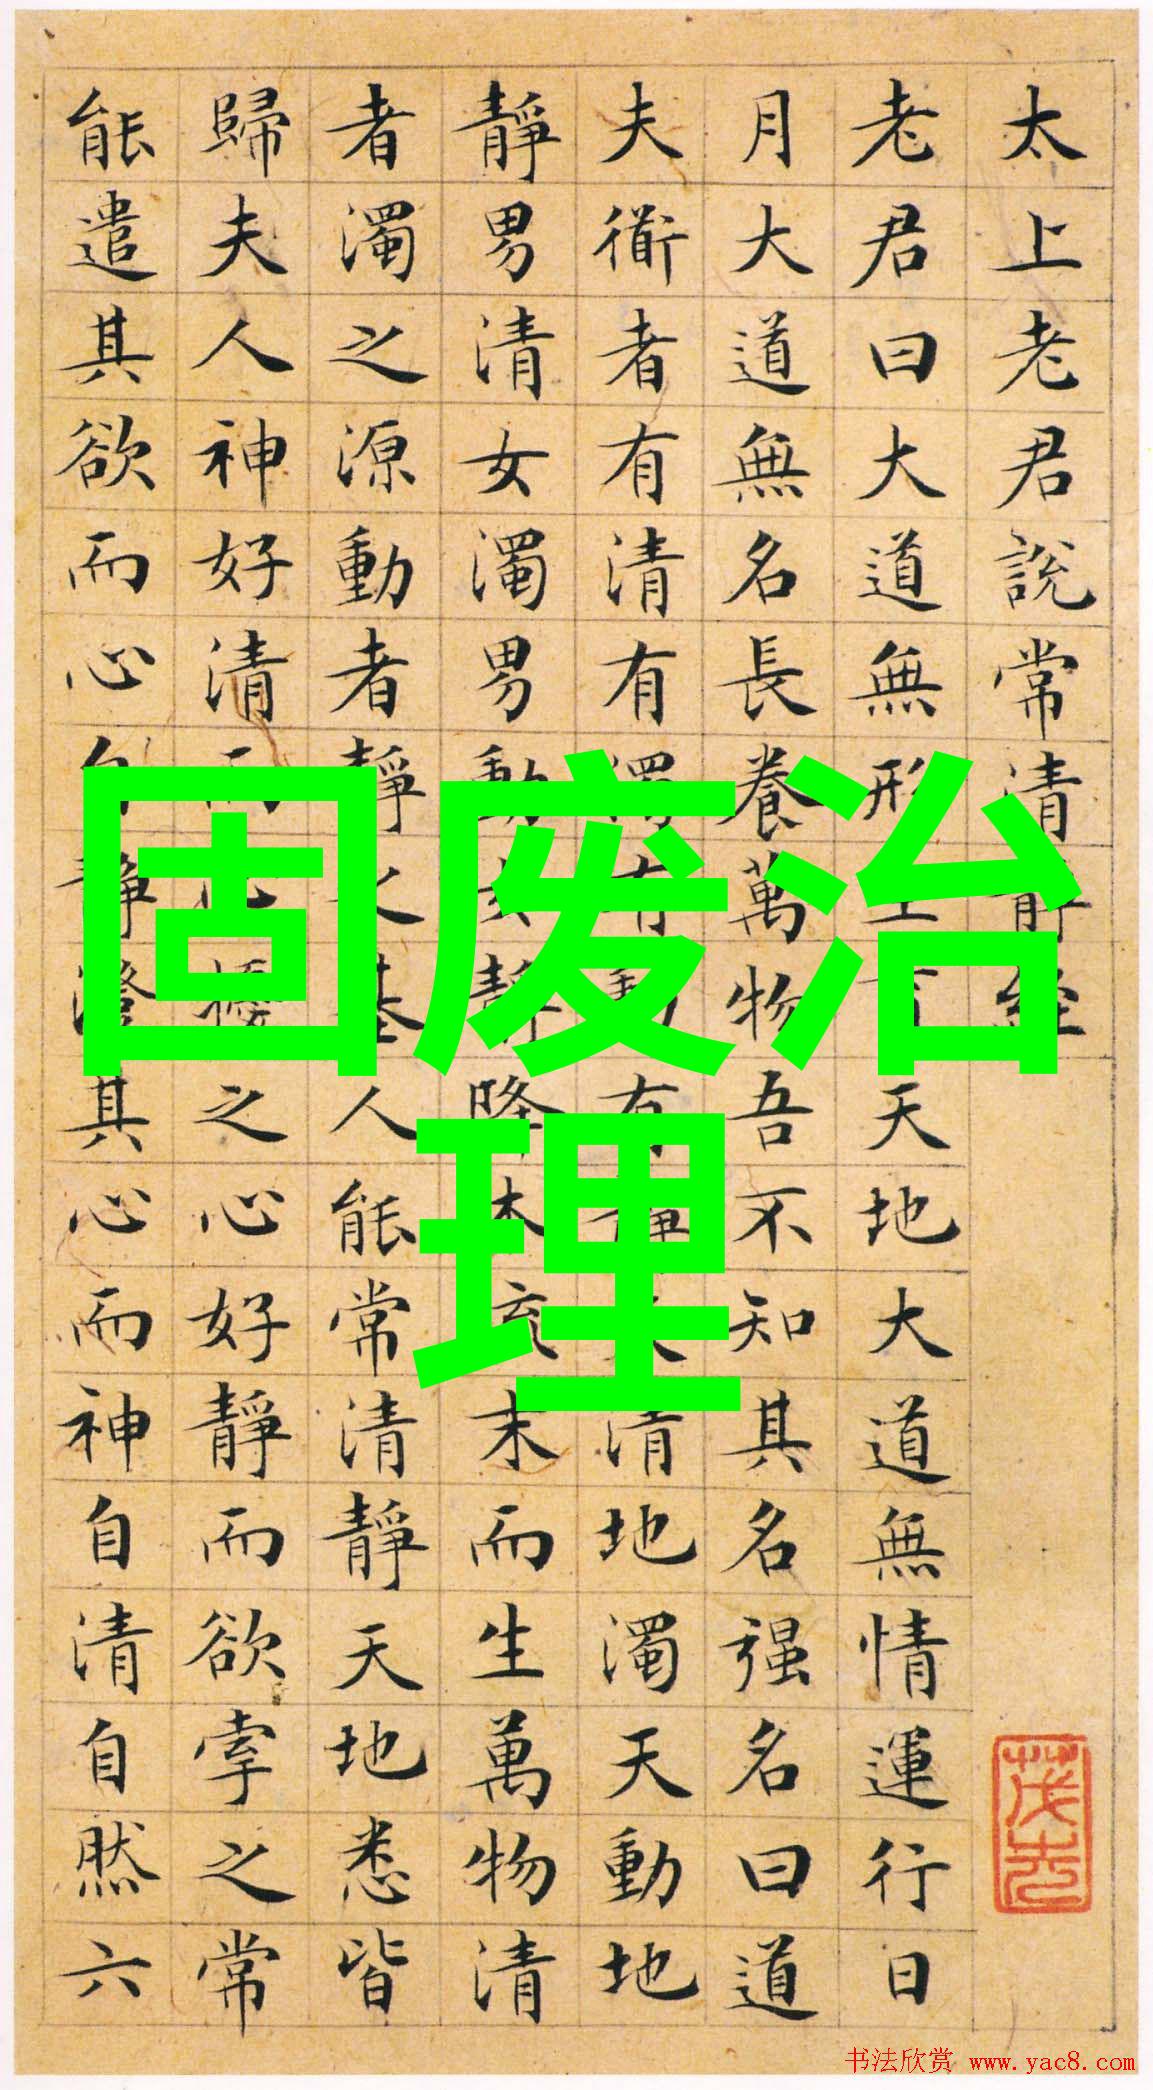 太上老君說常清靜經
老君曰大道無形生育天地大道無情運行日
月大道無名長養萬物吾不知其名强名曰道
夫衜者有清有濁有動有靜天清地濁天動地
靜男清女濁男動女靜降本流末而生萬物清
者濁之源動者靜之基人能常清靜天地悉皆
歸夫人神好清而心擾之心好靜而欲牽之常
能遣其欲而心自靜澄其心而神自清自然六
固废治
理
书法欣赏 www.yac8.com